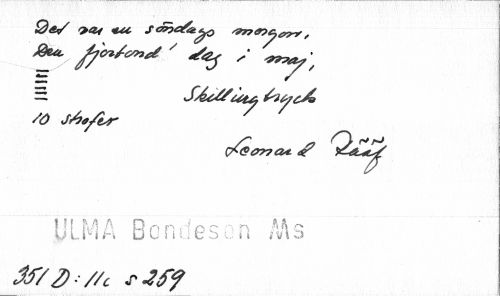 Det var en söndags morgon,
Den fjortond' dag i maj,
Skillingtryck
10 strofer
Leonard Rääf
ULMA Bondeson Ms
351 D:11c s 259